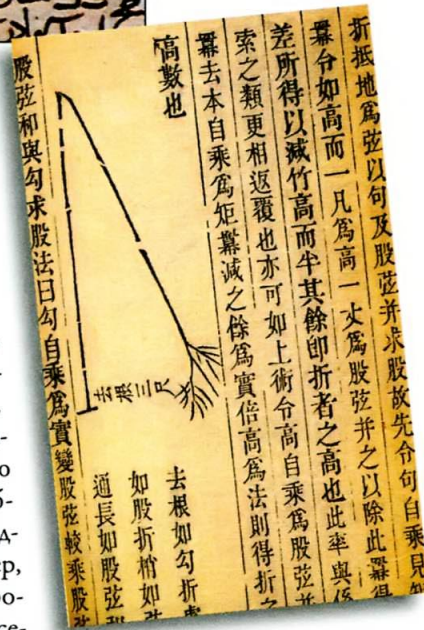 折抵地爲弦以句及股弦并求股故先令句自乘見
羃分如高而一凡爲高一丈爲股弦并之以除此羃得
差所得以減竹高而半其餘卽折者之高也此率與係
索之類更相返覆也亦可如上術令高自乘爲股弦并
羃去本自乘爲矩羃減之餘爲實倍高爲法則得折之
高數也
去根三尺
去根如勾折處
如股折梢如弦
通長如股弦和
股弦和與勾求股法曰勾自乘爲實變股弦較乘股弦
о
б-
д-
ер,
ро-
се-